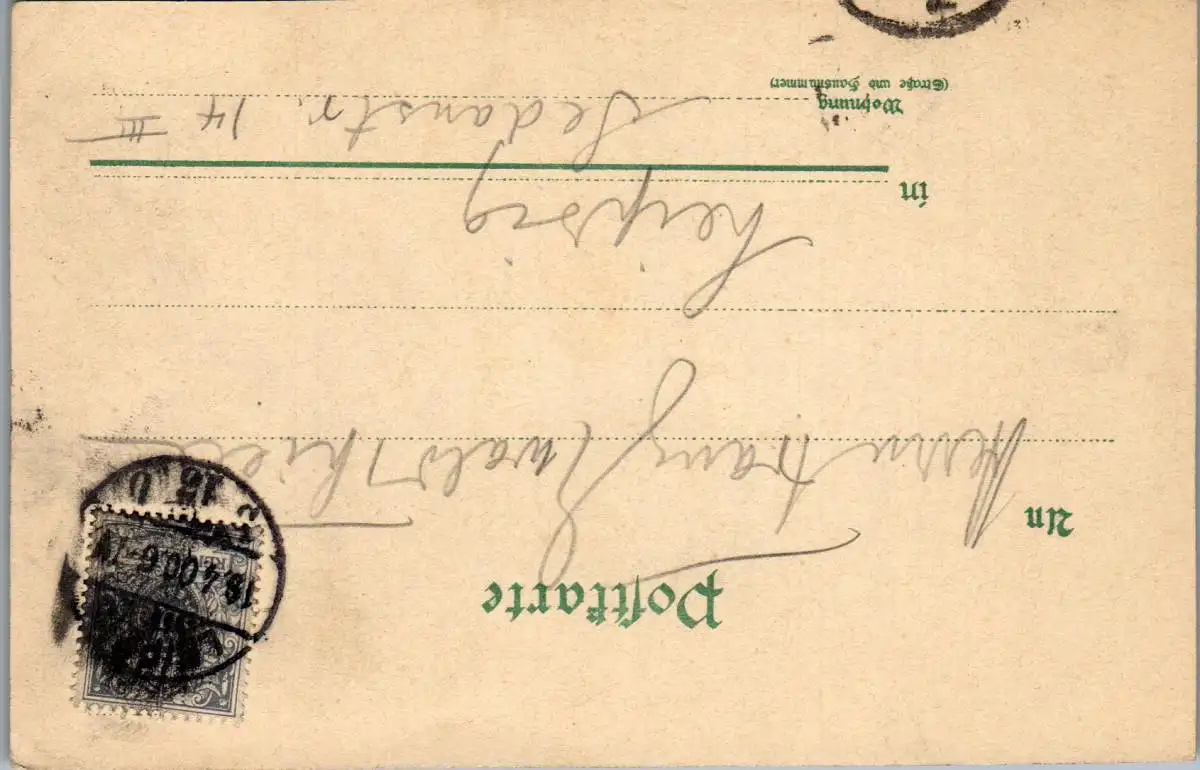 Postkarte
An
Herrn Franz Ewald Thiele
in
Leipzig
Wohnung
(Straße und Hausnummer)
Sedanstr. 14 III